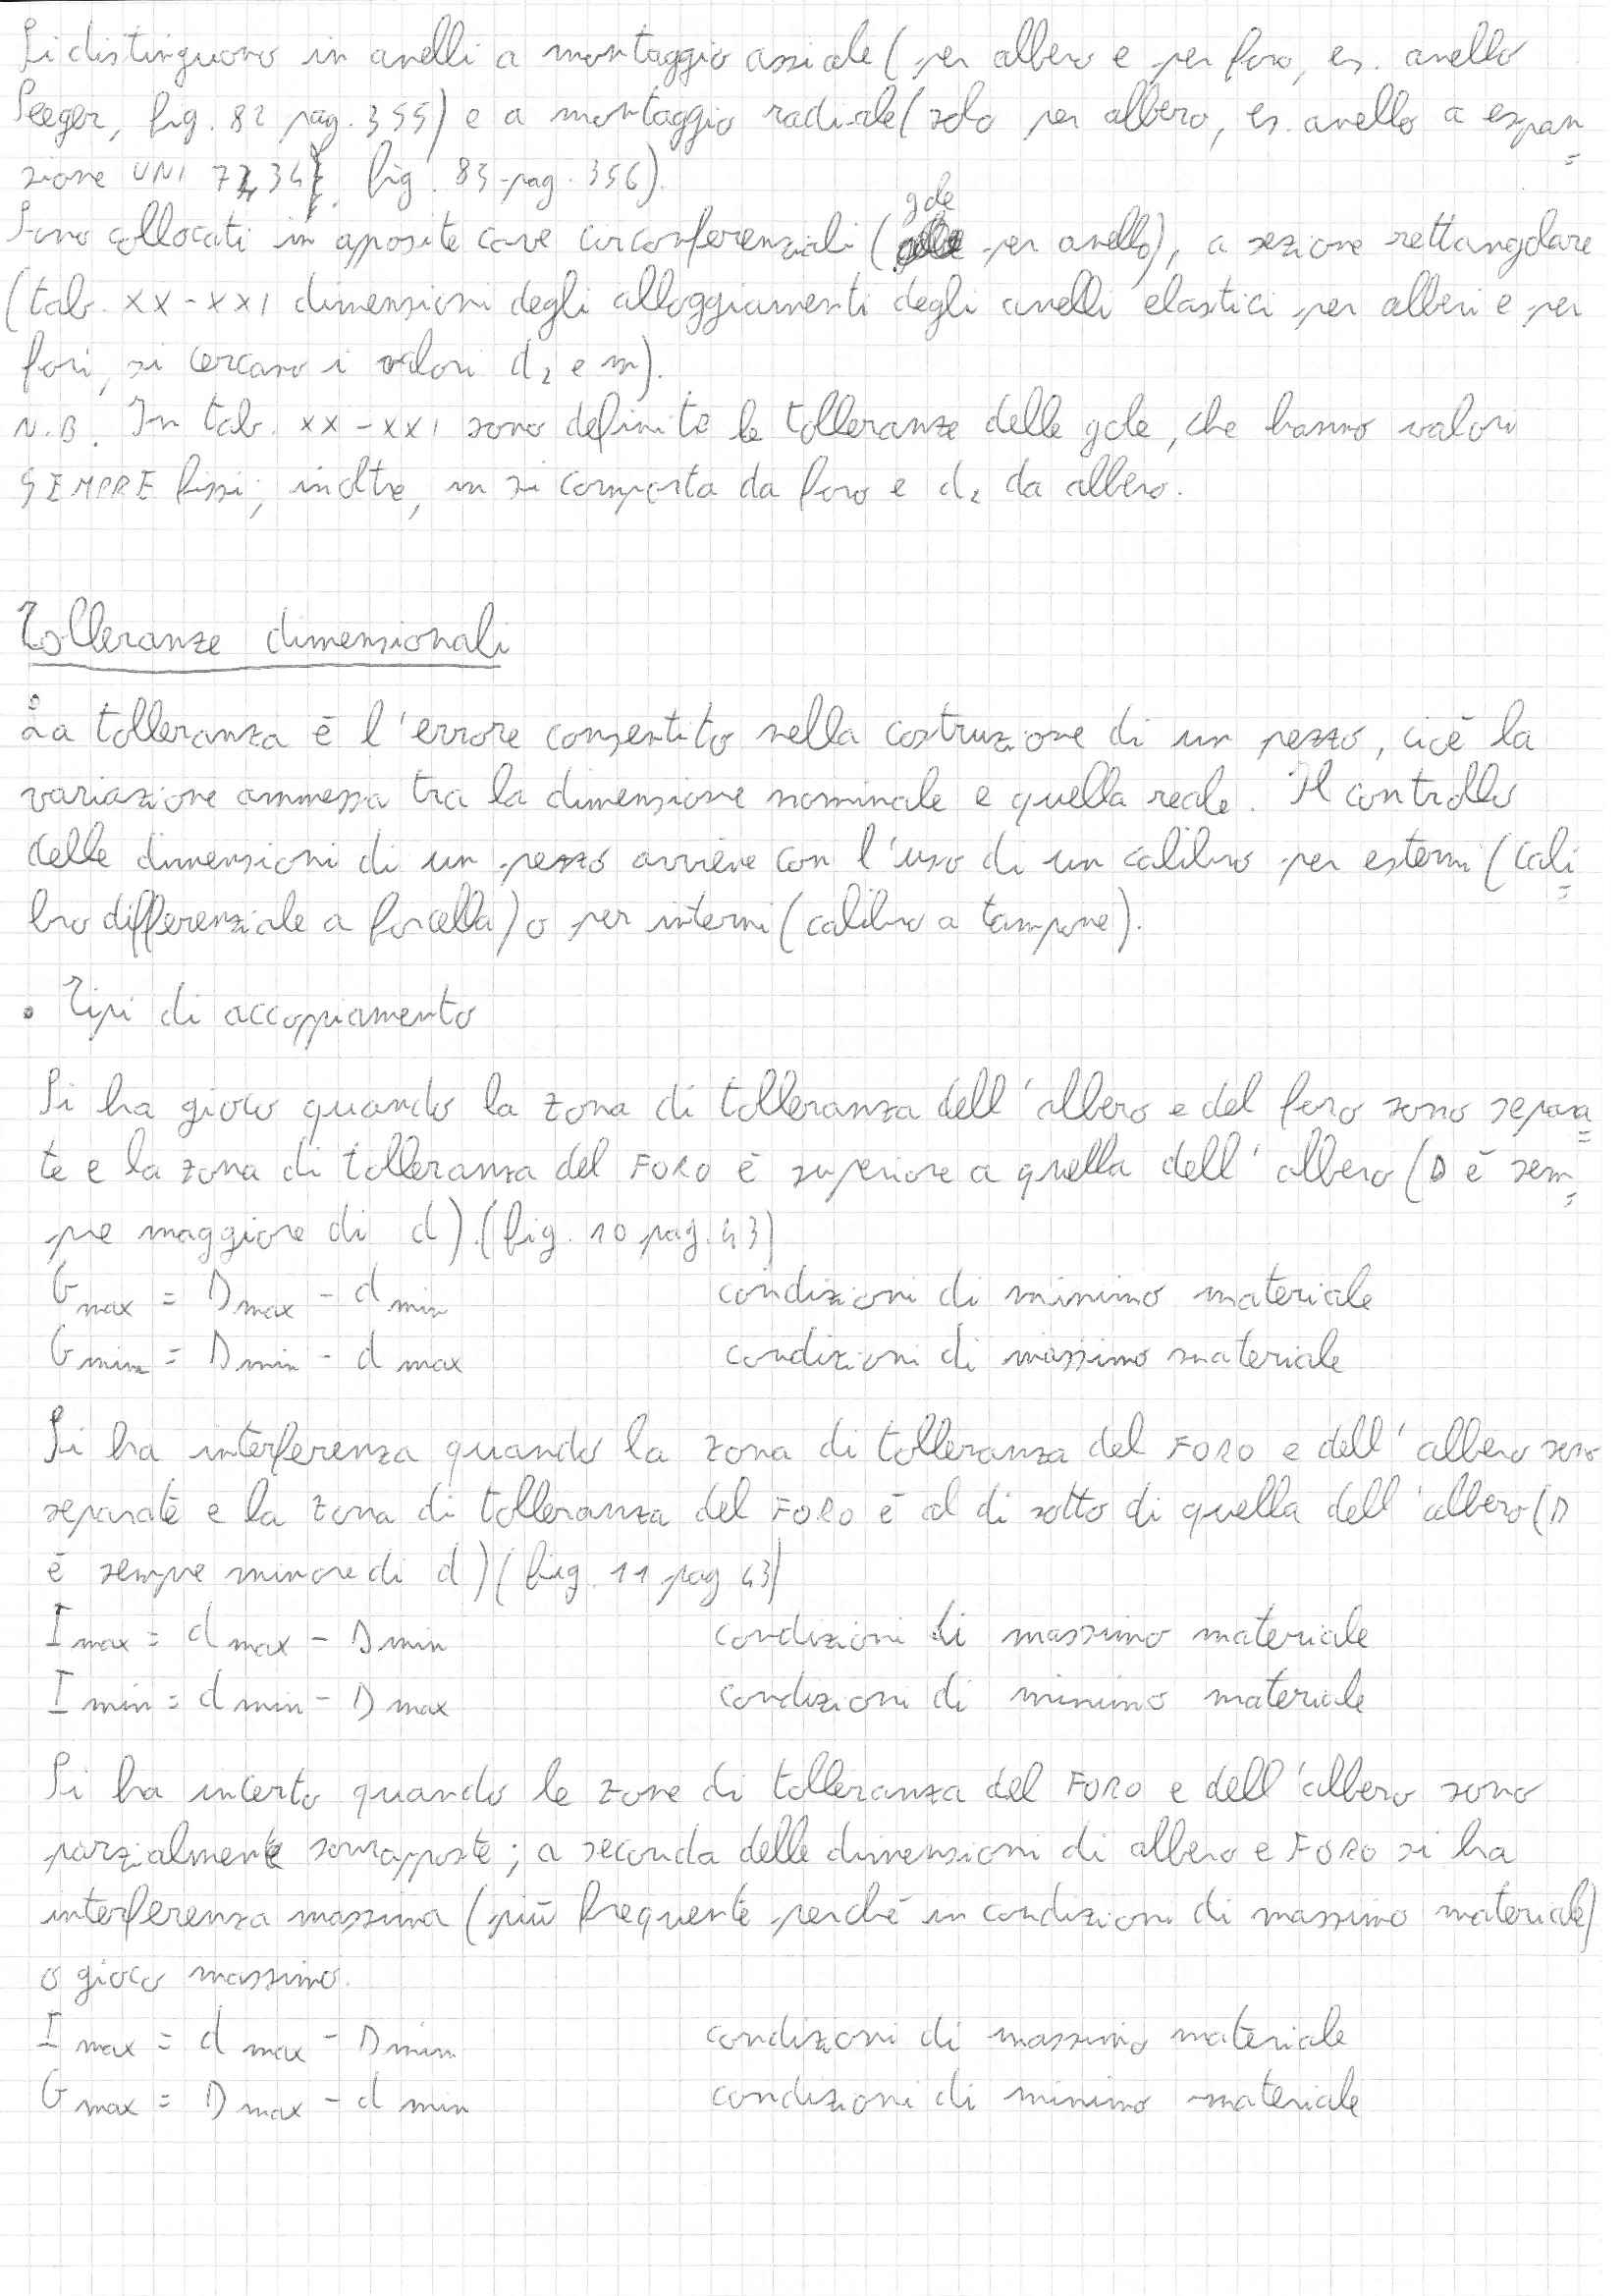 Si distinguono in anelli a montaggio assiale (per albero e per foro, es. anello
Seeger, fig. 82 pag. 355) e a montaggio radiale (solo per albero, es. anello a espan=
sione UNI 7434, fig. 83-pag. 356).
Sono collocati in apposite cave circonferenziali (gole per anello), a sezione rettangolare
(tab. XX-XXI dimensioni degli alloggiamenti degli anelli elastici per alberi e per
fori, si cercano i valori d2 e m).
N.B. In tab. XX-XXI sono definite le tolleranze delle gole, che hanno valori
SEMPRE fissi; inoltre, m si comporta da foro e d2 da albero.
Tolleranze dimensionali
La tolleranza è l'errore consentito nella costruzione di un pezzo, cioè la
variazione ammessa tra la dimensione nominale e quella reale. Il controllo
delle dimensioni di un pezzo avviene con l'uso di un calibro per esterni (cali=
bro differenziale a forcella) o per interni (calibro a tampone).
• Tipi di accoppiamento
Si ha gioco quando la zona di tolleranza dell'albero e del foro sono separa=
te e la zona di tolleranza del FORO è superiore a quella dell'albero (D è sem=
pre maggiore di d).(fig. 10 pag. 43)
Gmax = Dmax - dmin condizioni di minimo materiale
Gmin = Dmin - dmax condizioni di massimo materiale
Si ha interferenza quando la zona di tolleranza del FORO e dell'albero sono
separate e la zona di tolleranza del FORO è al di sotto di quella dell'albero (D
è sempre minore di d) (fig. 11 pag 43)
Imax = dmax - Dmin condizioni di massimo materiale
Imin = dmin - Dmax condizioni di minimo materiale
Si ha incerto quando le zone di tolleranza del FORO e dell'albero sono
parzialmente sovrapposte; a seconda delle dimensioni di albero e FORO si ha
interferenza massima (più frequente perché in condizioni di massimo materiale)
o gioco massimo.
Imax = dmax - Dmin condizioni di massimo materiale
Gmax = Dmax - dmin condizioni di minimo materiale